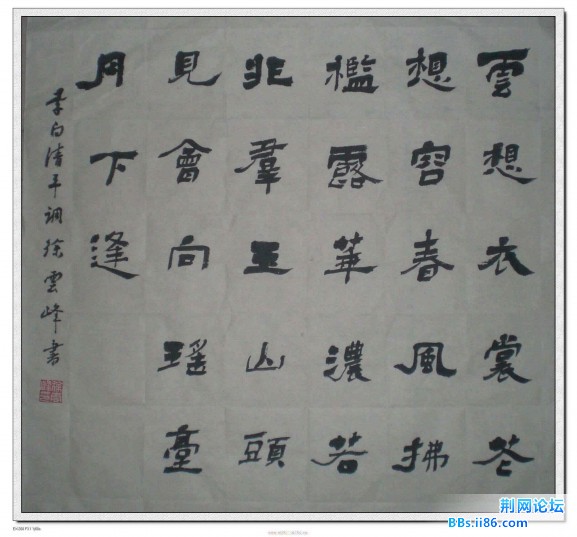 雲想衣裳花
想容春風拂
檻露華濃若
非羣玉山頭
見會向瑤臺
月下逢
李白清平調徐雲峰書
荆网论坛
BBs.ii86.com